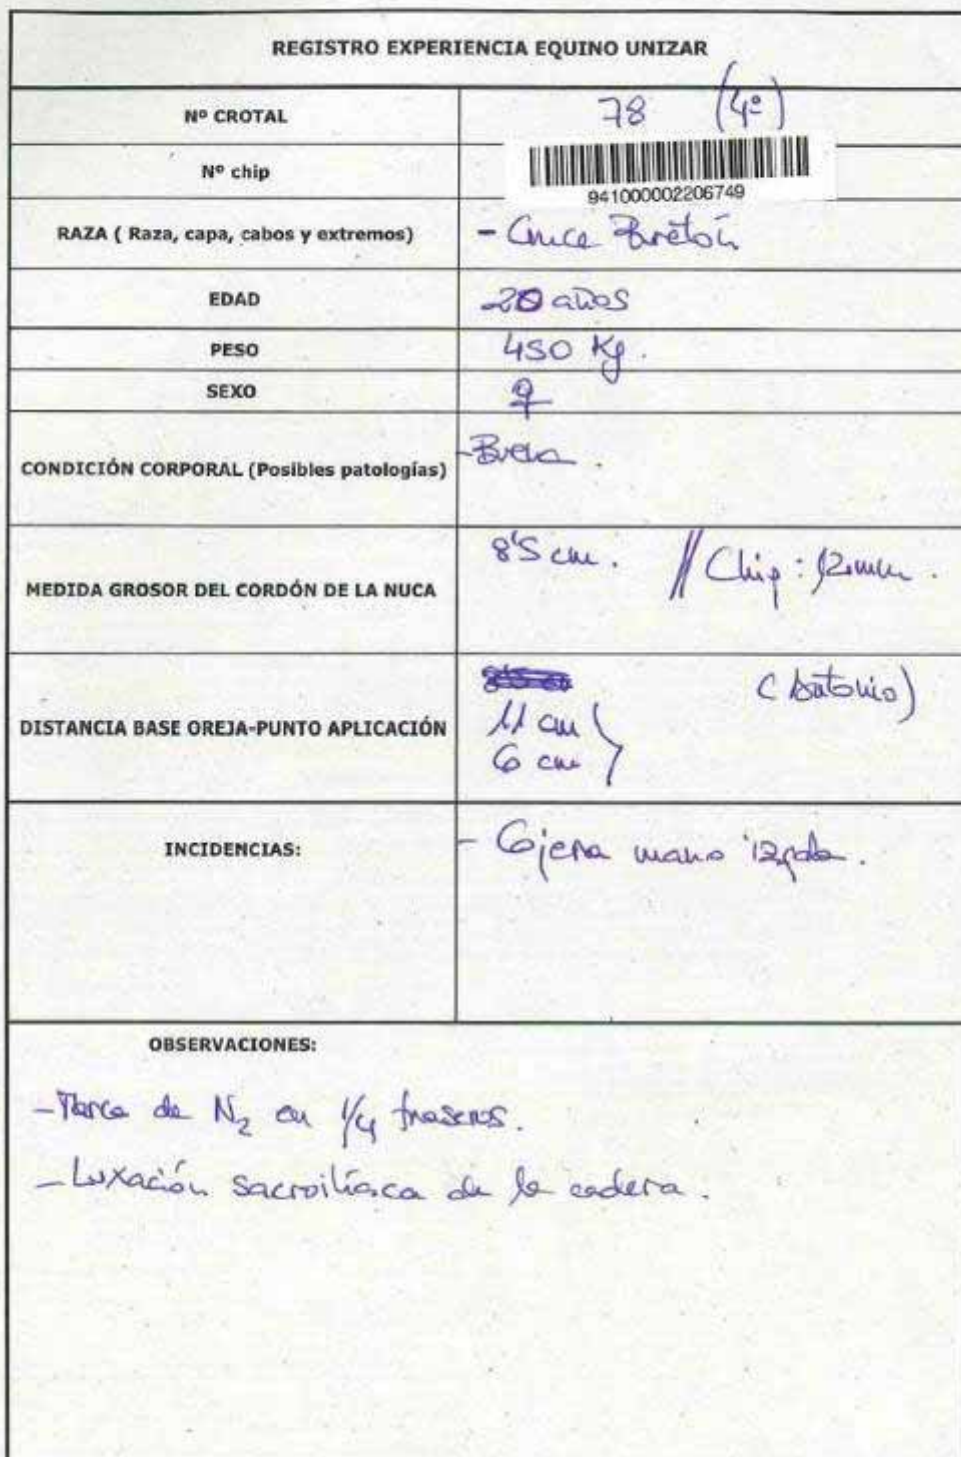 REGISTRO EXPERIENCIA EQUINO UNIZAR
Nº CROTAL
78 (4º)
Nº chip
941000002206749
RAZA ( Raza, capa, cabos y extremos)
- Cruce Bretón
EDAD
20 años
PESO
450 Kg.
SEXO
♀
CONDICIÓN CORPORAL (Posibles patologías)
- Buena.
MEDIDA GROSOR DEL CORDÓN DE LA NUCA
8'5 cm. // Chip: 12 mm.
DISTANCIA BASE OREJA-PUNTO APLICACIÓN
(Antonio)
11 cm
6 cm
INCIDENCIAS:
- Cojera mano izqda.
OBSERVACIONES:
- Marca de N2 en 1/4 traseros.
- Luxación sacroilíaca de la cadera.